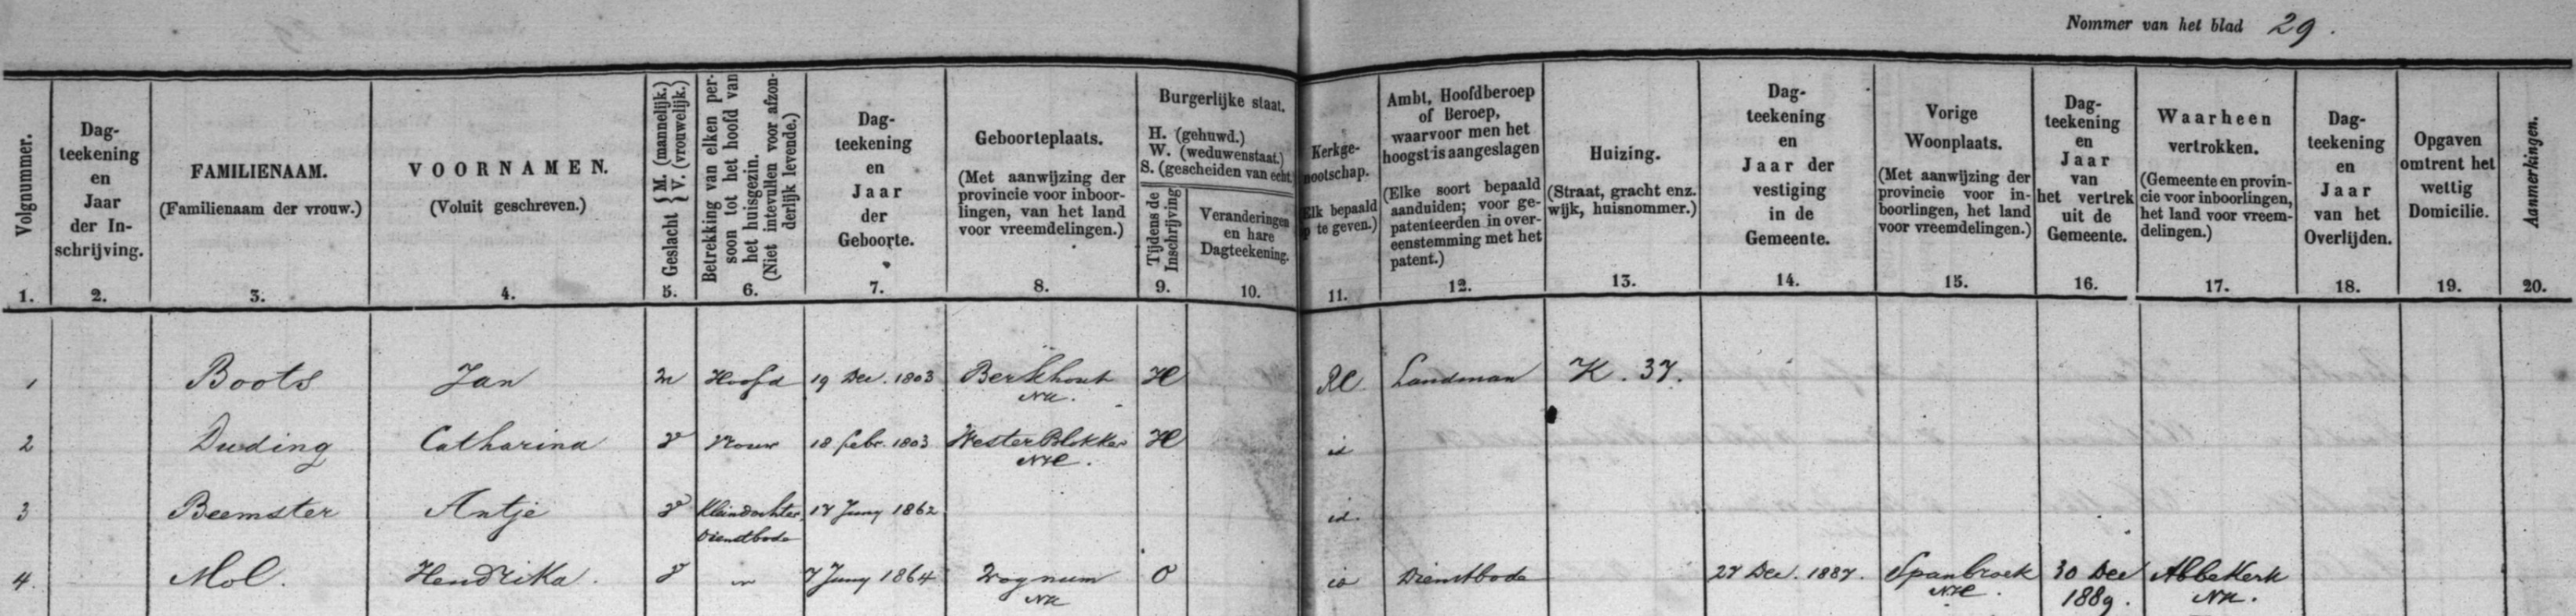 Nommer van het blad 29.
Volgnummer.
1.
Dag-
teekening
en
Jaar
der In-
schrijving.
2.
FAMILIENAAM.
(Familienaam der vrouw.)
3.
VOORNAMEN.
(Voluit geschreven.)
4.
Geslacht { M. (mannelijk.)
V. (vrouwelijk.)
5.
Betrekking van elken per-
soon tot het hoofd van
het huisgezin.
(Niet intevullen voor afzon-
derlijk levende.)
6.
Dag-
teekening
en
Jaar
der
Geboorte.
7.
Geboorteplaats.
(Met aanwijzing der
provincie voor inboor-
lingen, van het land
voor vreemdelingen.)
8.
Burgerlijke staat.
H. (gehuwd.)
W. (weduwenstaat.)
S. (gescheiden van echt.
Tijdens de
Inschrijving
9.
Veranderingen
en hare
Dagteekening.
10.
Kerkge-
nootschap.
Elk bepaald
te geven.)
11.
Ambt, Hoofdberoep
of Beroep,
waarvoor men het
hoogst is aangeslagen
(Elke soort bepaald
aanduiden; voor ge-
patenteerden in over-
eenstemming met het
patent.)
12.
Huizing.
(Straat, gracht enz.
wijk, huisnommer.)
13.
Dag-
teekening
en
Jaar der
vestiging
in de
Gemeente.
14.
Vorige
Woonplaats.
(Met aanwijzing der
provincie voor in-
boorlingen, het land
voor vreemdelingen.)
15.
Dag-
teekening
en
Jaar
van
het vertrek
uit de
Gemeente.
16.
Waarheen
vertrokken.
(Gemeente en provin-
cie voor inboorlingen,
het land voor vreem-
delingen.)
17.
Dag-
teekening
en
Jaar
van het
Overlijden.
18.
Opgaven
omtrent het
wettig
Domicilie.
19.
Aanmerkingen.
20.
1 Boots Jan M Hoofd 19 Dec. 1803 Berkhout H RC Landman K. 37.
NH.
2 Duding Catharina V Vrouw 18 febr. 1803 WesterBlokker H id
NH.
3 Beemster Antje V Kleindochter 17 Juny 1862 id.
Dienstbode
4. Mol. Hendrika. V " 7 Juny 1864 Wognum O id Dienstbode 27 Dec. 1887. Spanbroek 30 Dec Abbekerk
NH NH. 1889. NH.